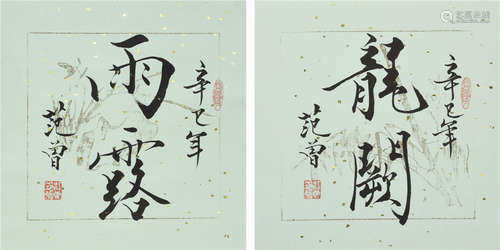 雨露
辛巳年
范曾
龍闕
辛巳年
范曾